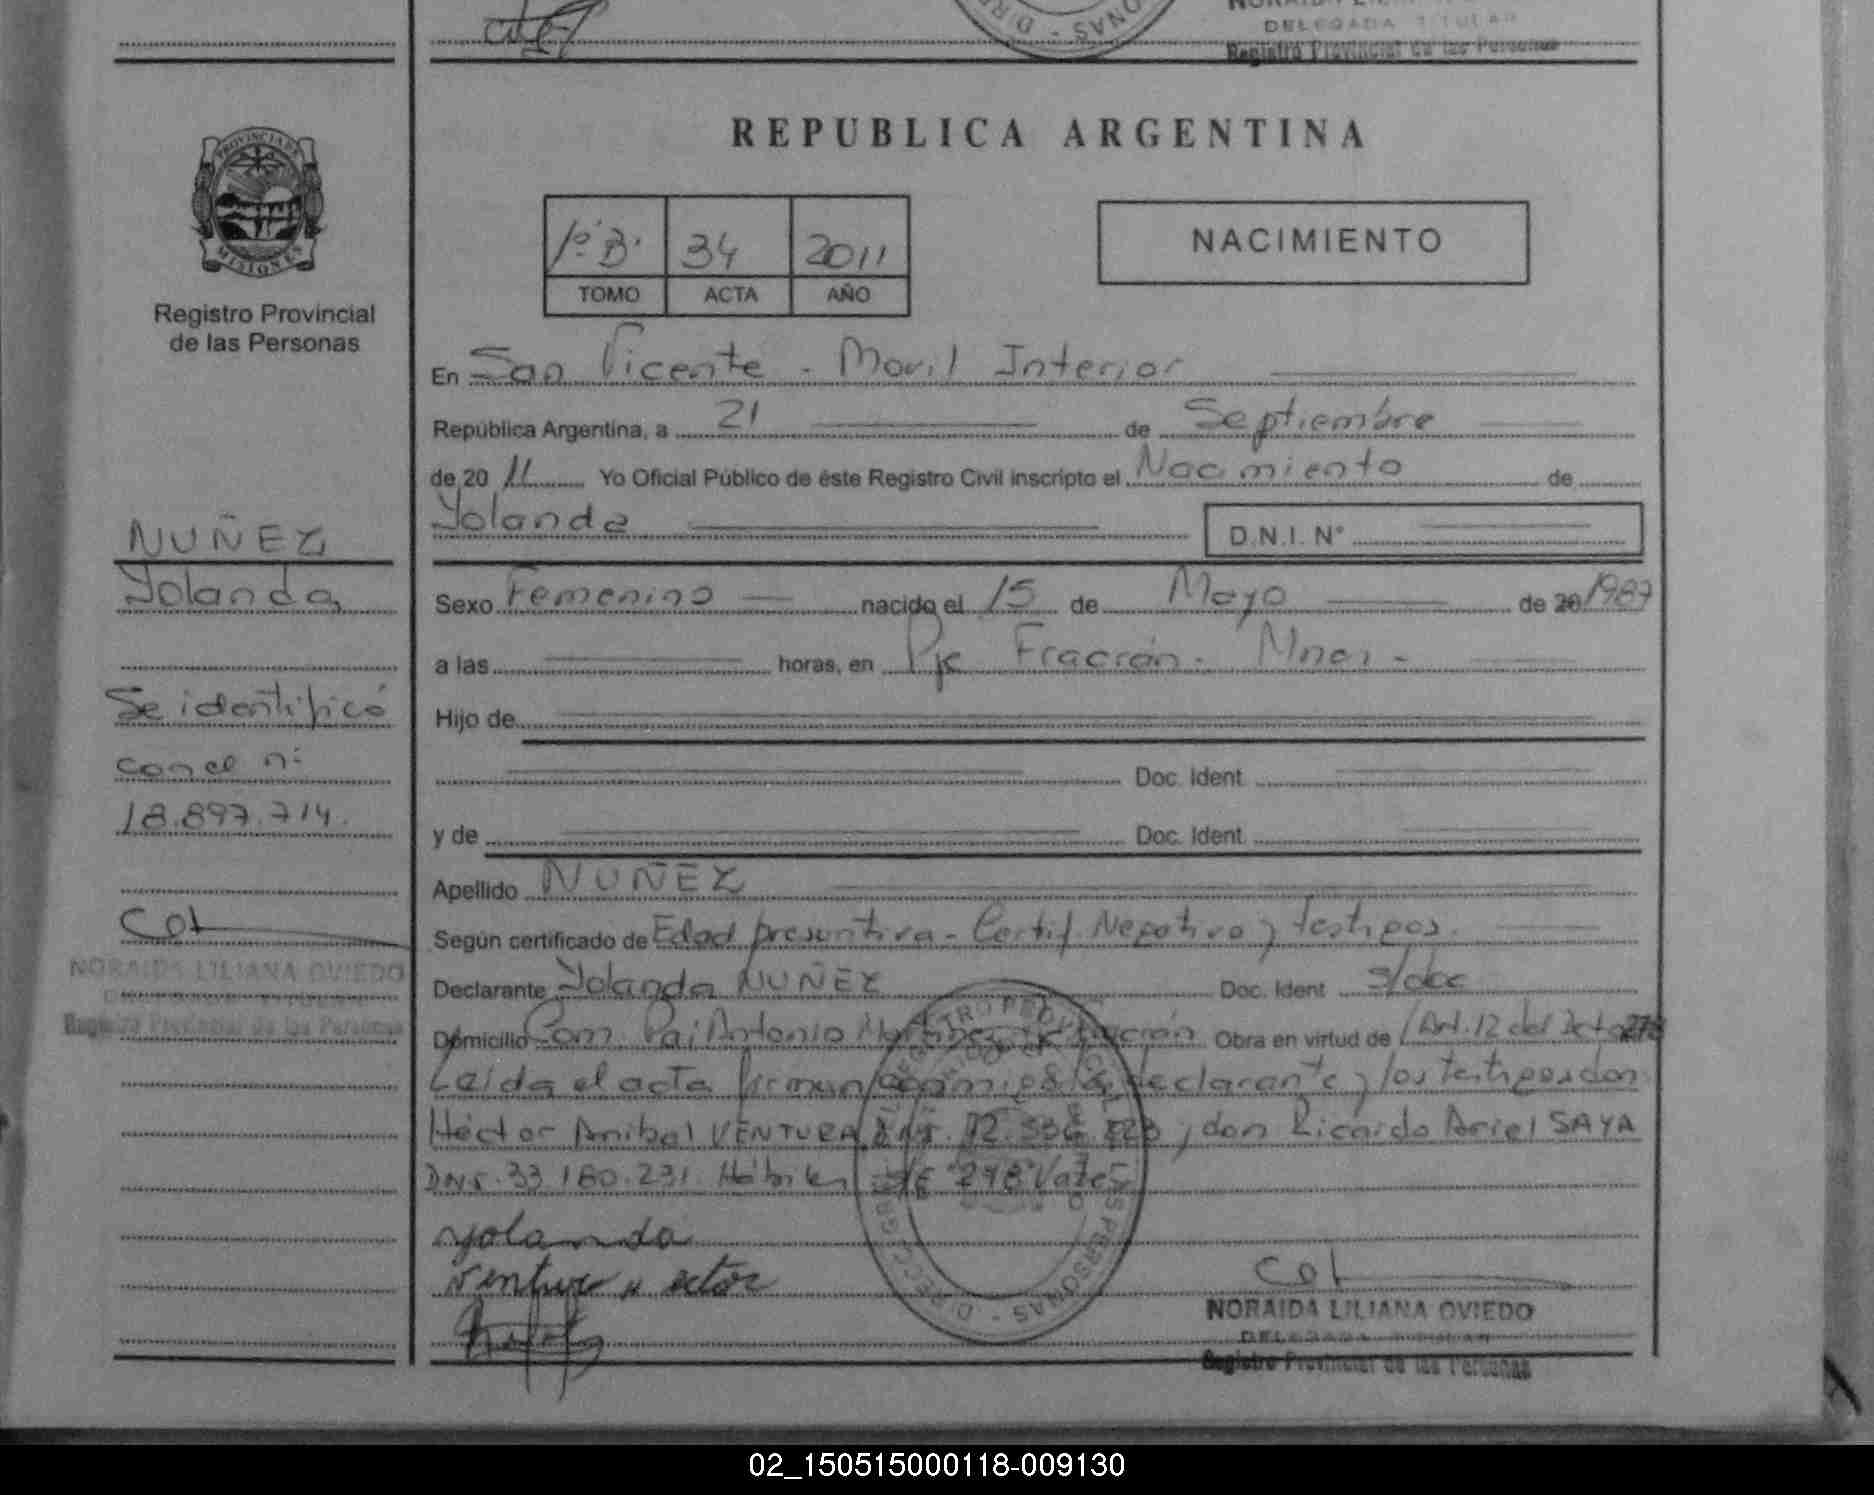 NORAIDA
DELEGADA TITULAR
Registro Provincial de las Personas
PROVINCIA DE
MISIONES
Registro Provincial
de las Personas
REPUBLICA ARGENTINA
1º B. 34 2011
TOMO ACTA AÑO
NACIMIENTO
En San Vicente - Movil Interior
República Argentina, a 21 de Septiembre
de 20 11 Yo Oficial Público de éste Registro Civil inscripto el Nacimiento de
Yolanda D.N.I. N°
NUÑEZ
Yolanda
Sexo Femenino nacido el 15 de Mayo de 20 1987
a las horas, en Pje Fracrán. Mnes -
Se identificó
con el nº
18.897.714.
Hijo de
Doc. Ident.
y de Doc. Ident.
Apellido NUÑEZ
Según certificado de Edad presuntiva - Certif. Negativo y testigos.
NORAIDA LILIANA OVIEDO
Registro Provincial de las Personas
Declarante Yolanda NUÑEZ Doc. Ident. s/doc
Domicilio Com. Pai Antonio Martinez Fracrán Obra en virtud de Art. 12 del
Leída el acta firman conmigo la declarante y los testigos don
Héctor Anibal VENTURA y don Ricardo Ariel SAYA
DNI. 33.180.231.
yolanda
ventura
NORAIDA LILIANA OVIEDO
DELEGADA TITULAR
Registro Provincial de las Personas
02_150515000118-009130